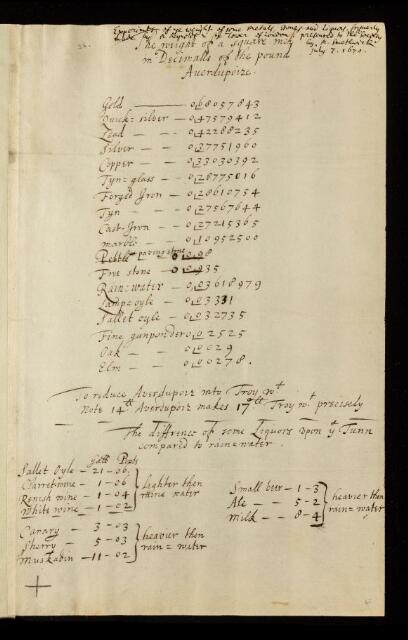 Experiments of ye weight of some metals, stones and liquors, formerly
made by a Repository of Tower of London & presented to the Society
by
July 7. 1670.
The weight of a square inch
in Decimalls of the pound
Averdupoize.
Gold — 0,68057843
Quick=silver — 0,47579412
Lead — — 0,42288235
Silver — — 0,37751960
Copper — — 0,33030392
Tyn=glass — — 0,28775016
Forged Iron — 0,28610754
Tyn — — 0,27567644
Cast-Iron — — 0,27245365
marble — — 0,10952500
Pebble paving stone 0,098
Fire stone — 0,0935
Rain=water — 0,03618979
Lamp=oyle — 0,03331
Sallet oyle — 0,032735
Fine gunponder 0,02525
Oak — — 0,0029
Elm — — 0,00278.
To reduce Averdupoiz into Troy wt
Note 14lb Averdupoiz makes 17lb Troy wt precisely
The diffrence of some Liquors upon ye Tunn
compared to rainewater.
Galls Pints
Sallet Oyle — 21 — 06
Clarretwine — 1 — 06
Renish wine — 1 — 04
White wine — 1 — 02
lighter then
raine water
Canary — 3 — 03
Sherry — 5 — 03
Muskadin — 11 — 02
heavier then
rain=water
Small beer — 1 — 3
Ale — — 5 — 2
Milk — 8 — 4
heavier then
rain=water